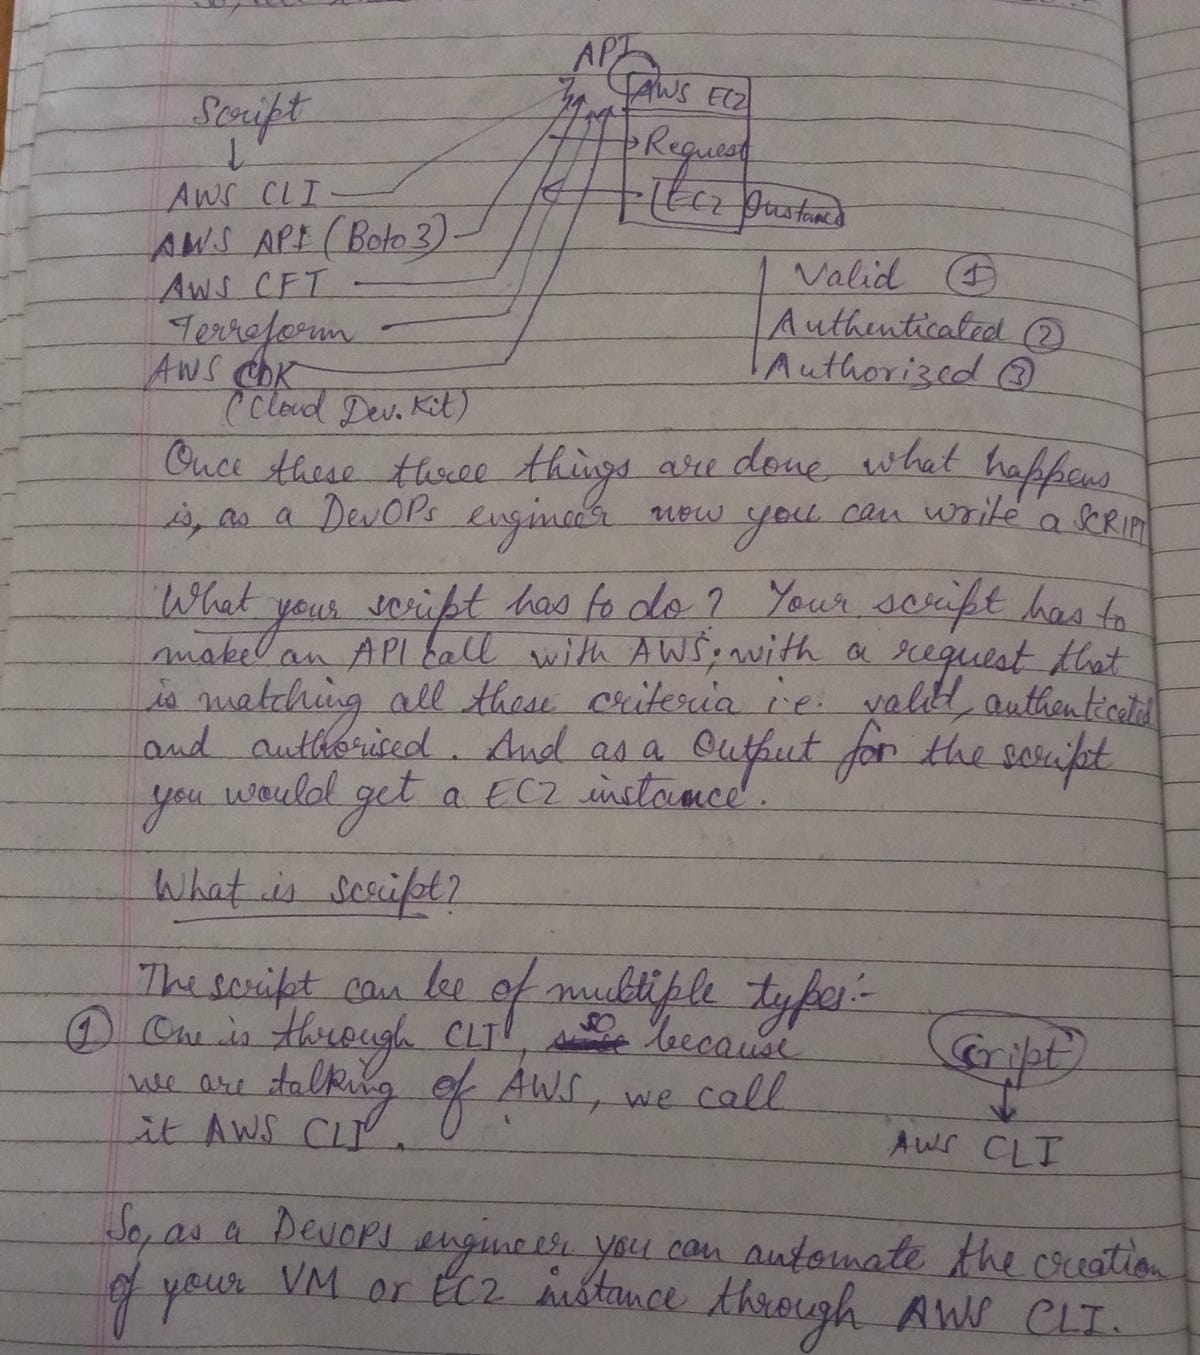 API
Script
AWS EC2
Request
AWS CLI
EC2 Instance
AWS API (Boto3)
AWS CFT
Valid ①
Terraform
Authenticated ②
AWS CDK
Authorized ③
(Cloud Dev. Kit)
Once these three things are done what happens
is, as a DevOPs engineer now you can write a SCRIPT
What your script has to do? Your script has to
make an API call with AWS; with a request that
is matching all these criteria i.e. valid, authenticated
and authorised. And as a Output for the script
you would get a EC2 instance.
What is script?
The script can be of multiple types:-
① One is through CLI, so because
Script
we are talking of AWS, we call
it AWS CLI.
AWS CLI
So, as a DevOPS engineer you can automate the creation
of your VM or EC2 instance through AWS CLI.